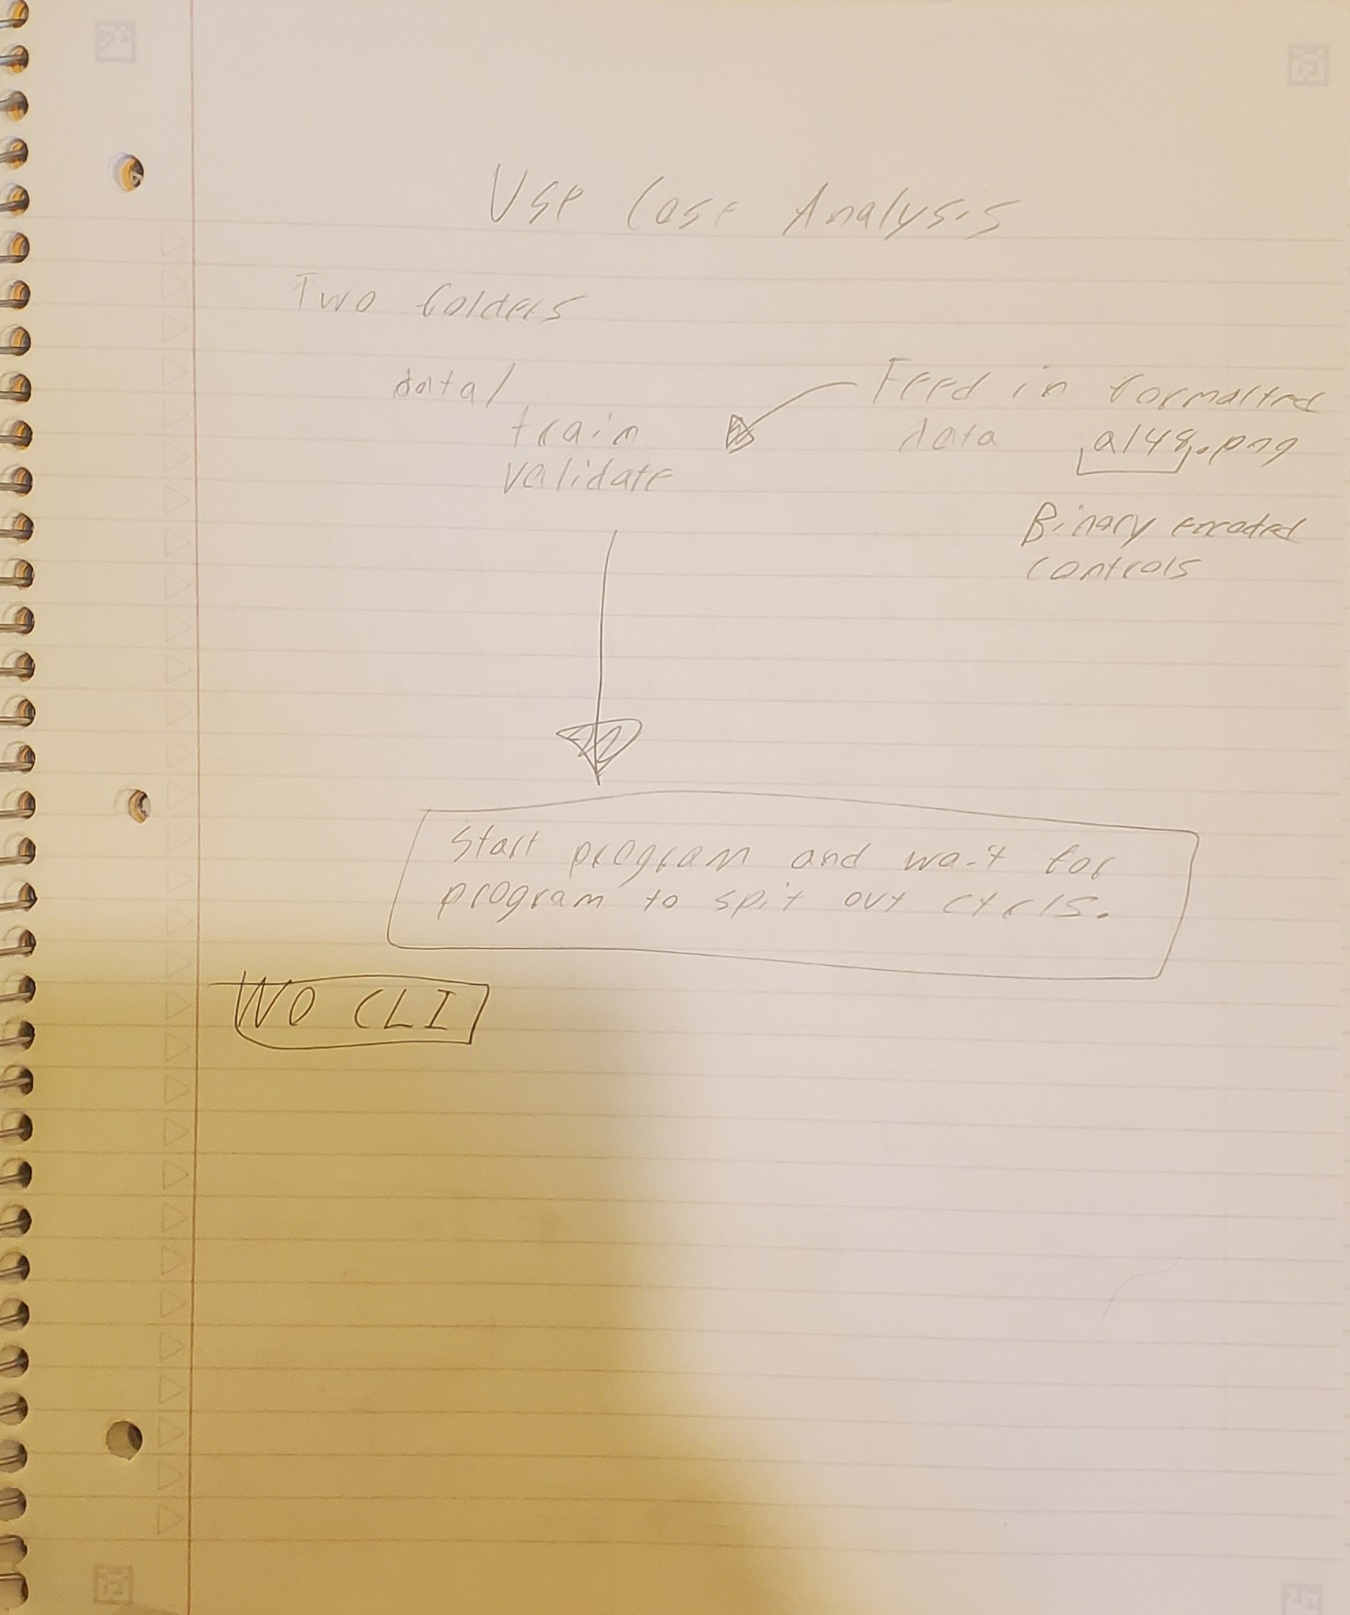 Use Case Analysis
Two folders
data/
train
validate
Feed in formatted
data a148.png
Binary encoded
controls
Start program and wait for
program to spit out ctrls.
NO CLI